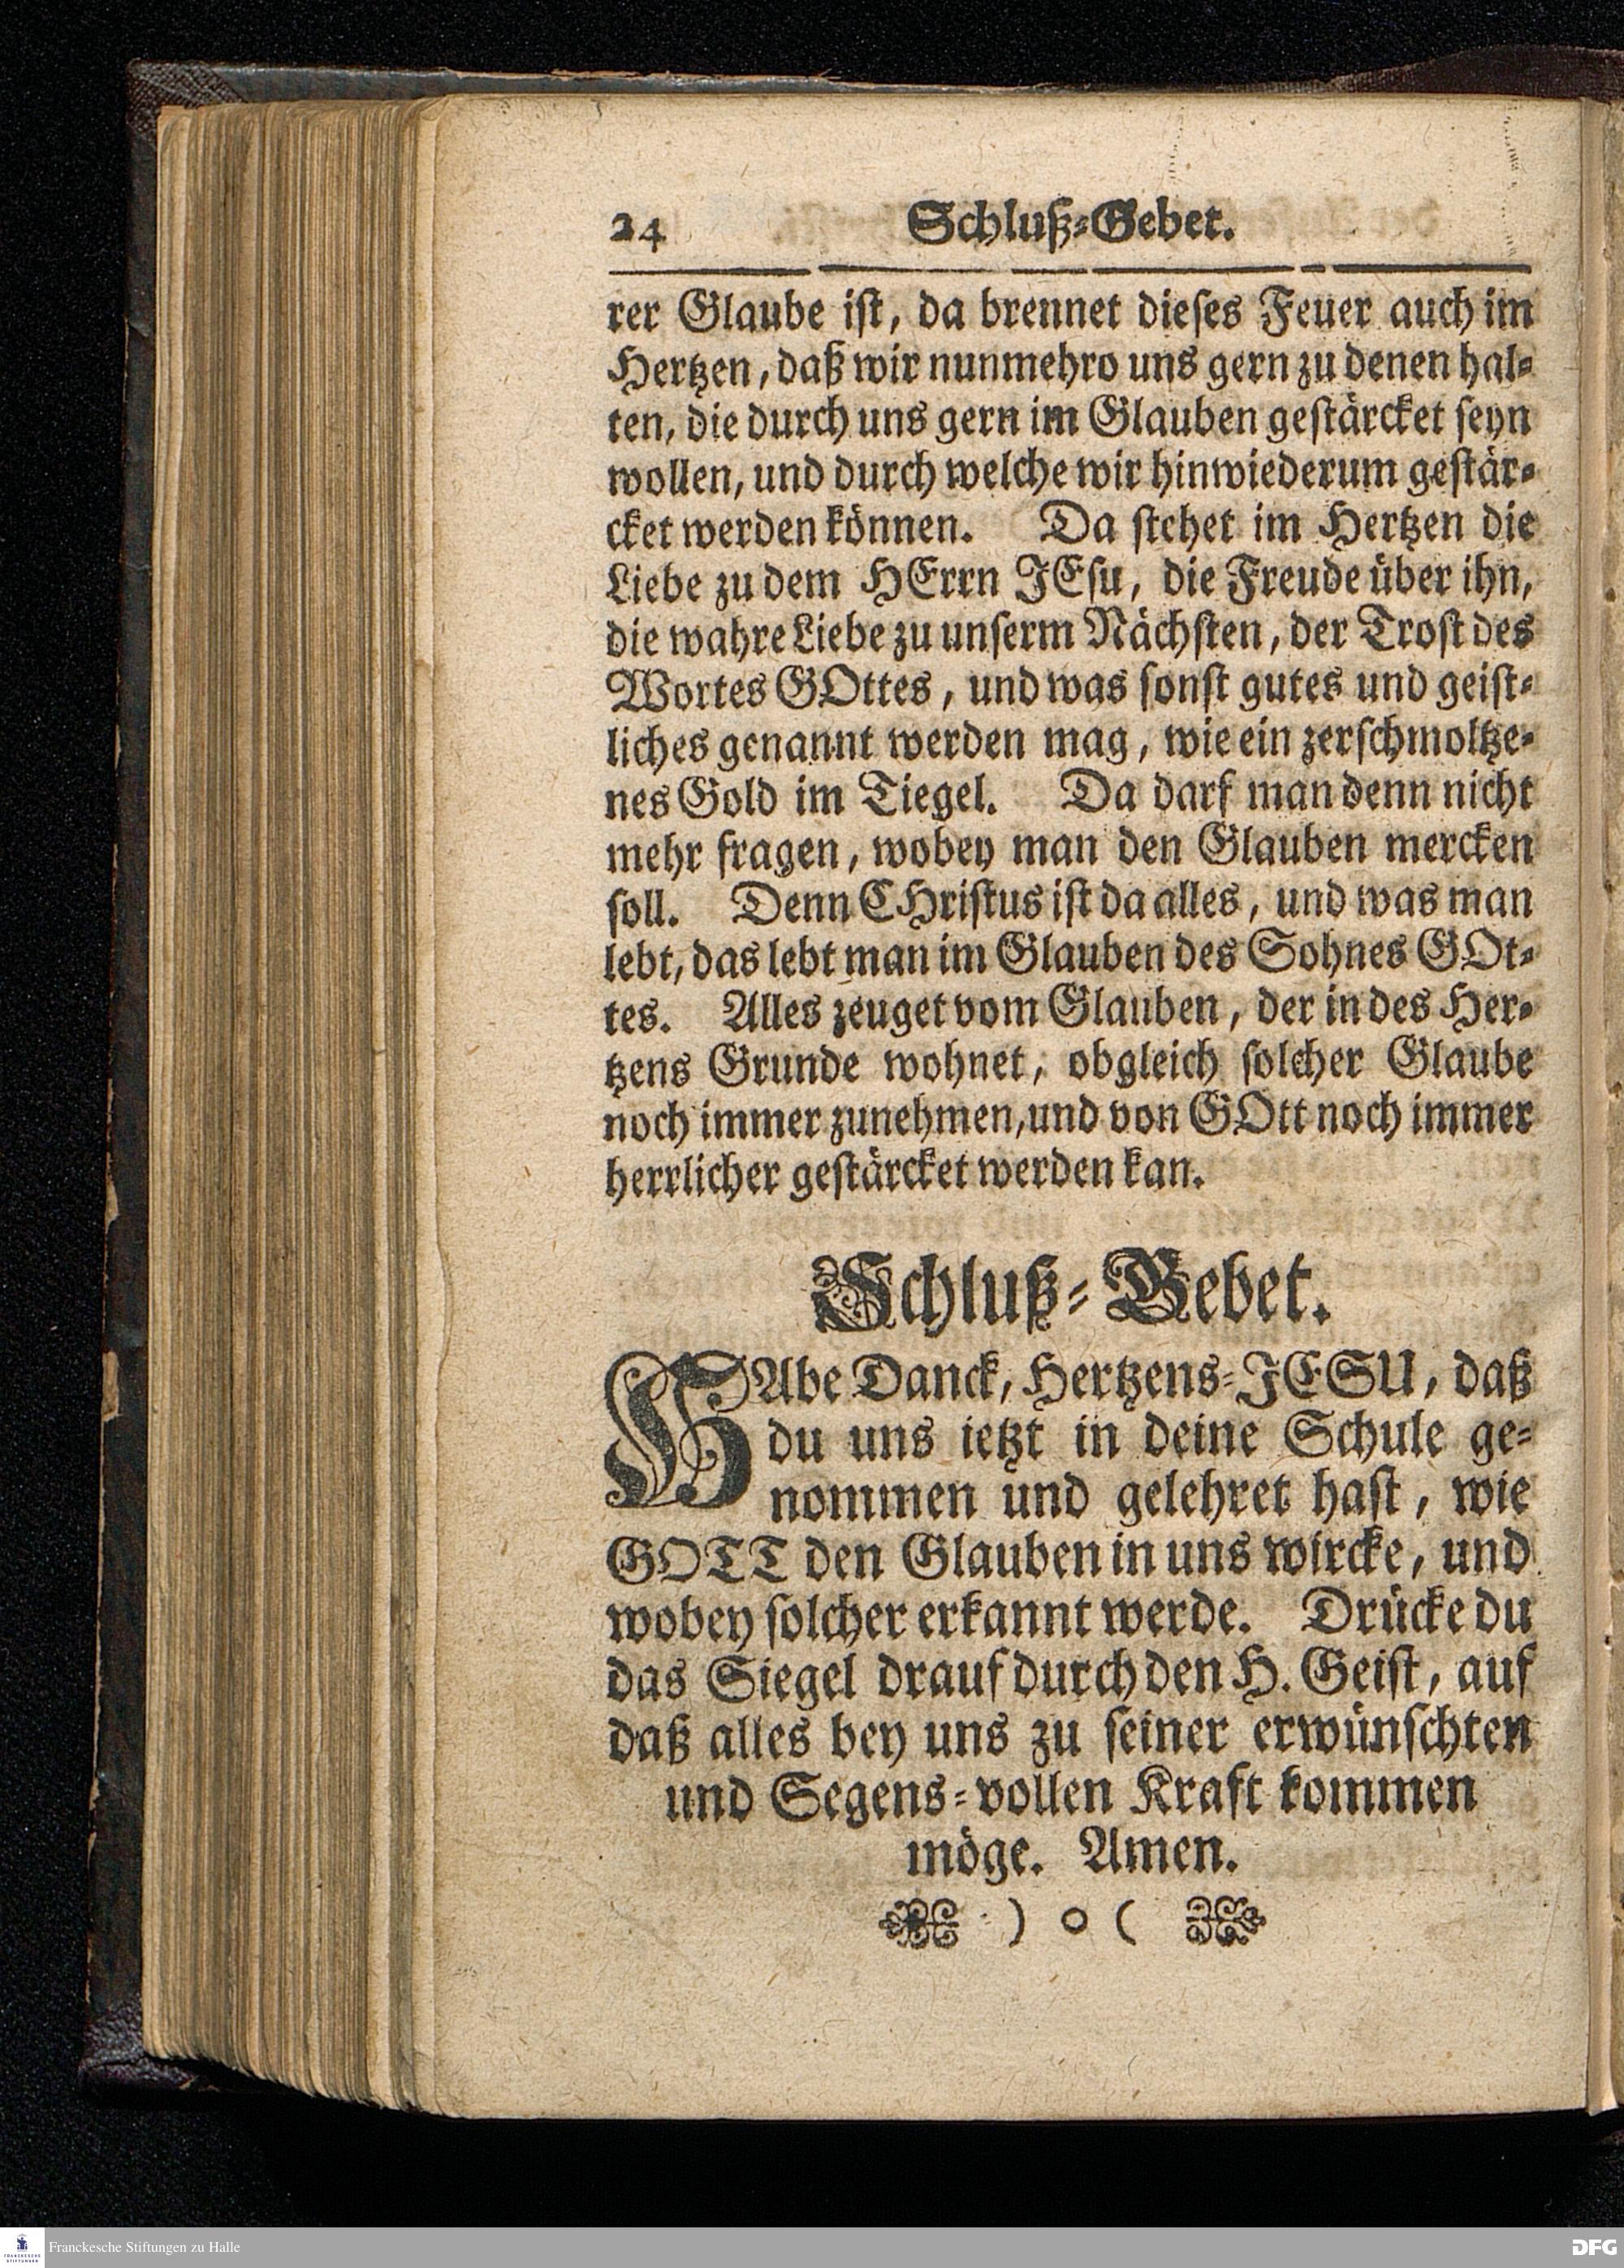 24 Schluß-Gebet.
rer Glaube ist, da brennet dieses Feuer auch im
Hertzen, daß wir nunmehro uns gern zu denen hal-
ten, die durch uns gern im Glauben gestärcket seyn
wollen, und durch welche wir hinwiederum gestär-
cket werden können. Da stehet im Hertzen die
Liebe zu dem HErrn JEsu, die Freude über ihn,
die wahre Liebe zu unserm Nächsten, der Trost des
Wortes GOttes, und was sonst gutes und geist-
liches genannt werden mag, wie ein zerschmoltze-
nes Gold im Tiegel. Da darf man denn nicht
mehr fragen, wobey man den Glauben mercken
soll. Denn CHristus ist da alles, und was man
lebt, das lebt man im Glauben des Sohnes GOt-
tes. Alles zeuget vom Glauben, der in des Her-
tzens Grunde wohnet, obgleich solcher Glaube
noch immer zunehmen, und von GOtt noch immer
herrlicher gestärcket werden kan.
Schluß-Gebet.
HAbe Danck, Hertzens-JESU, daß
du uns ietzt in deine Schule ge-
nommen und gelehret hast, wie
GOTT den Glauben in uns wircke, und
wobey solcher erkannt werde. Drücke du
das Siegel drauf durch den H. Geist, auf
daß alles bey uns zu seiner erwünschten
und Segens-vollen Kraft kommen
möge. Amen.
) o (
FRANCKESCHE STIFTUNGEN
Franckesche Stiftungen zu Halle
DFG